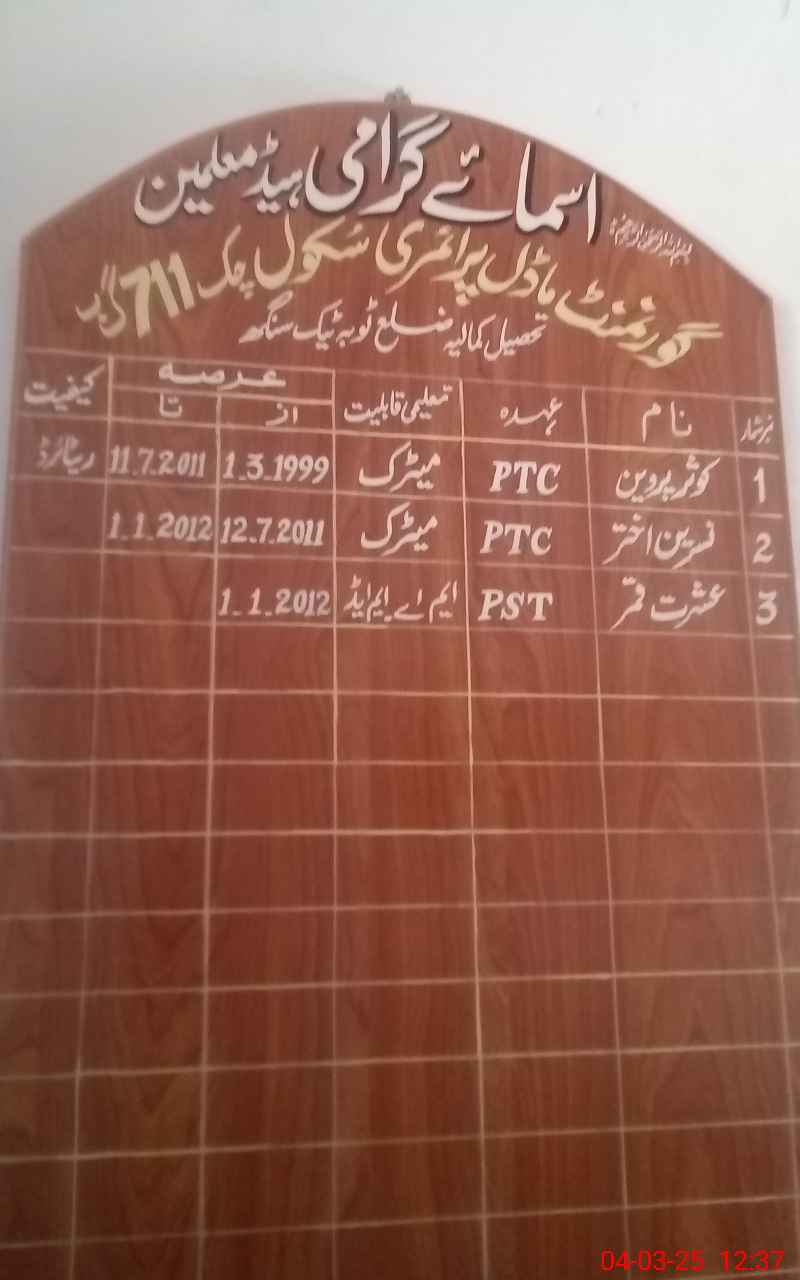 بسم اللہ الرحمن الرحیم
اسمائے گرامی ہیڈ معلمین
گورنمنٹ ماڈل پرائمری سکول چک 711 گ ب
تحصیل کمالیہ ضلع ٹوبہ ٹیک سنگھ
نمبر شمار نام عہدہ تعلیمی قابلیت عرصہ کیفیت
از تا
1 کوثر پروین PTC میٹرک 1.3.1999 11.7.2011 ریٹائرڈ
2 نسرین اختر PTC میٹرک 12.7.2011 1.1.2012
3 عشرت قمر PST ایم اے۔ایم ایڈ 1.1.2012
04-03-25 12:37